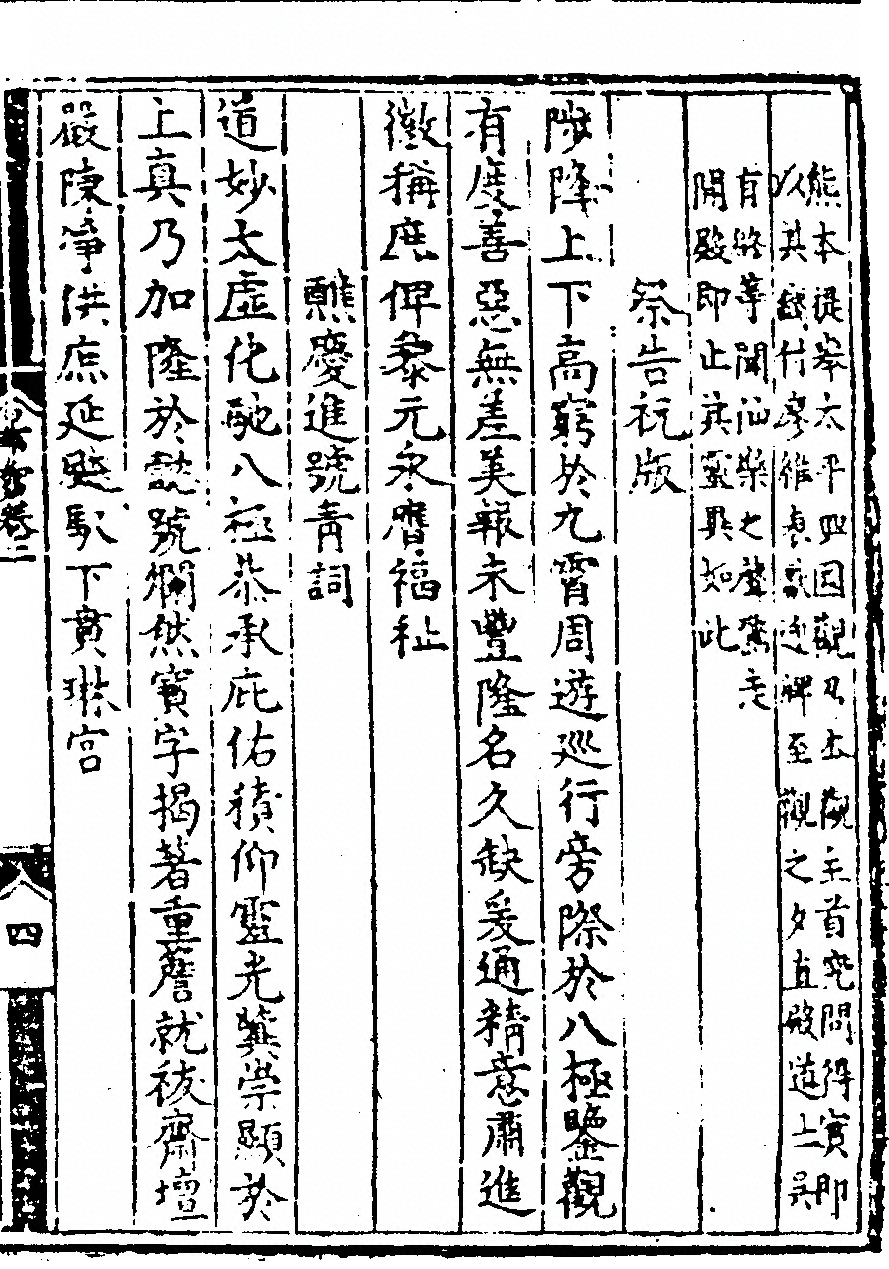 熊本提舉太平興國觀乃本觀主首究問得實即
以其錢付廖維哀感迎神至觀之夕直殿道士吳
有終等聞仙樂之聲驚走
開殿即止其靈異如此
祭告祝版
陟降上下高窮於九霄周遊巡行旁際於八極鑒觀
有度善惡無差美報未豐隆名久缺爰通精意肅進
徽稱庶俾黎元永膺福祉
醮慶進號青詞
道妙太虛化馳八極恭承庇佑積仰靈光冀崇顯於
上真乃加隆於懿號爛然寶字揭著重簷就祓齋壇
嚴陳淨供庶延飈馭下賁琳宮
卷二
四